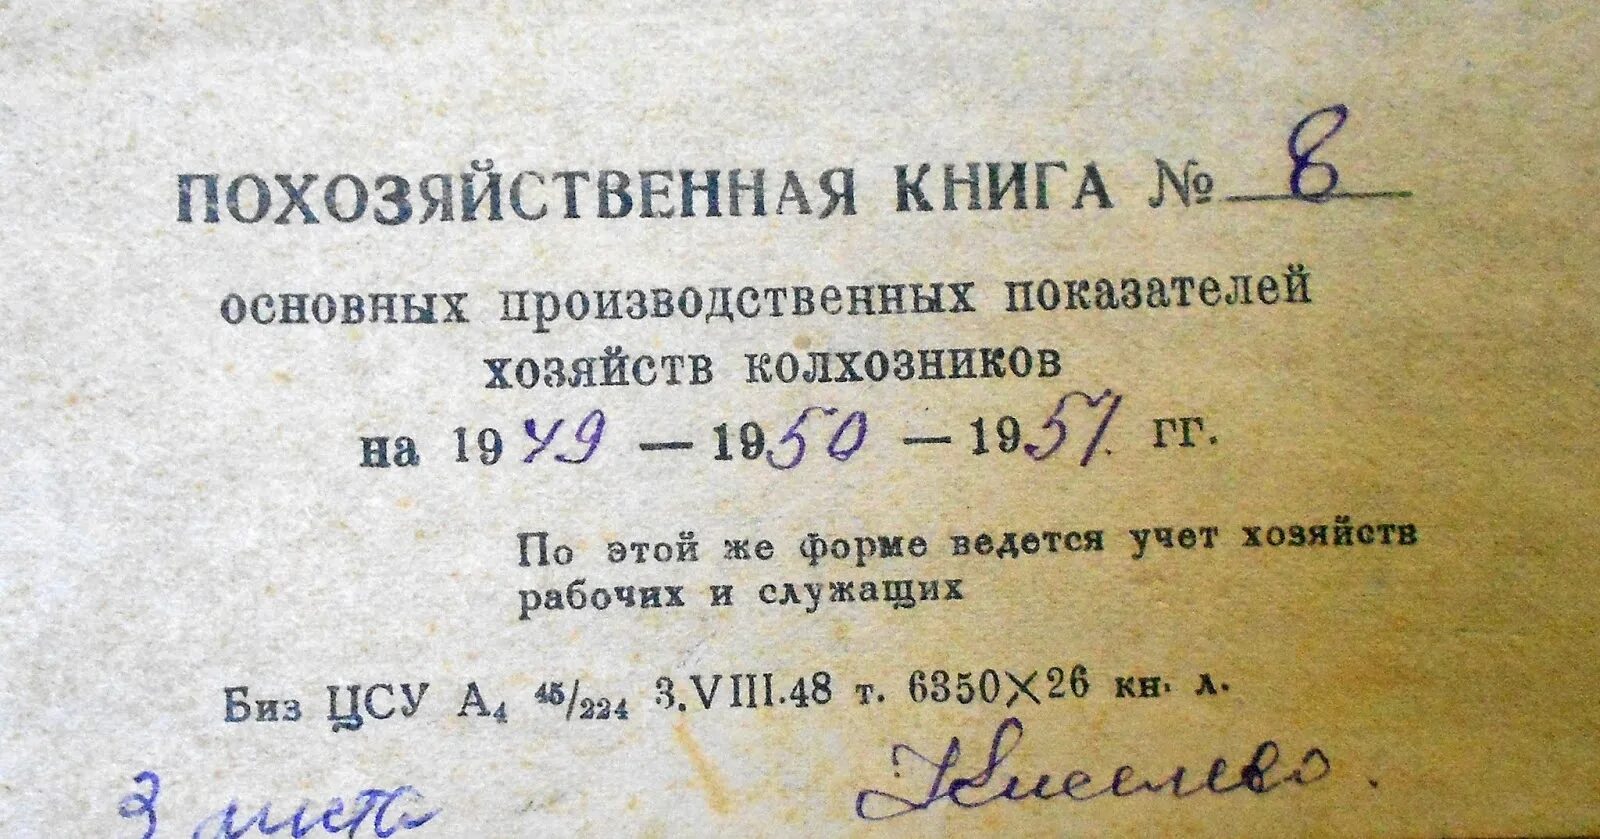 ПОХОЗЯЙСТВЕННАЯ КНИГА № 8
основных производственных показателей
хозяйств колхозников
на 1949 — 1950 — 1951 гг.
По этой же форме ведется учет хозяйств
рабочих и служащих
Биз ЦСУ А₄ 45/224 3.VIII.48 т. 6350×26 кн. л.
Киселево.
3 листа